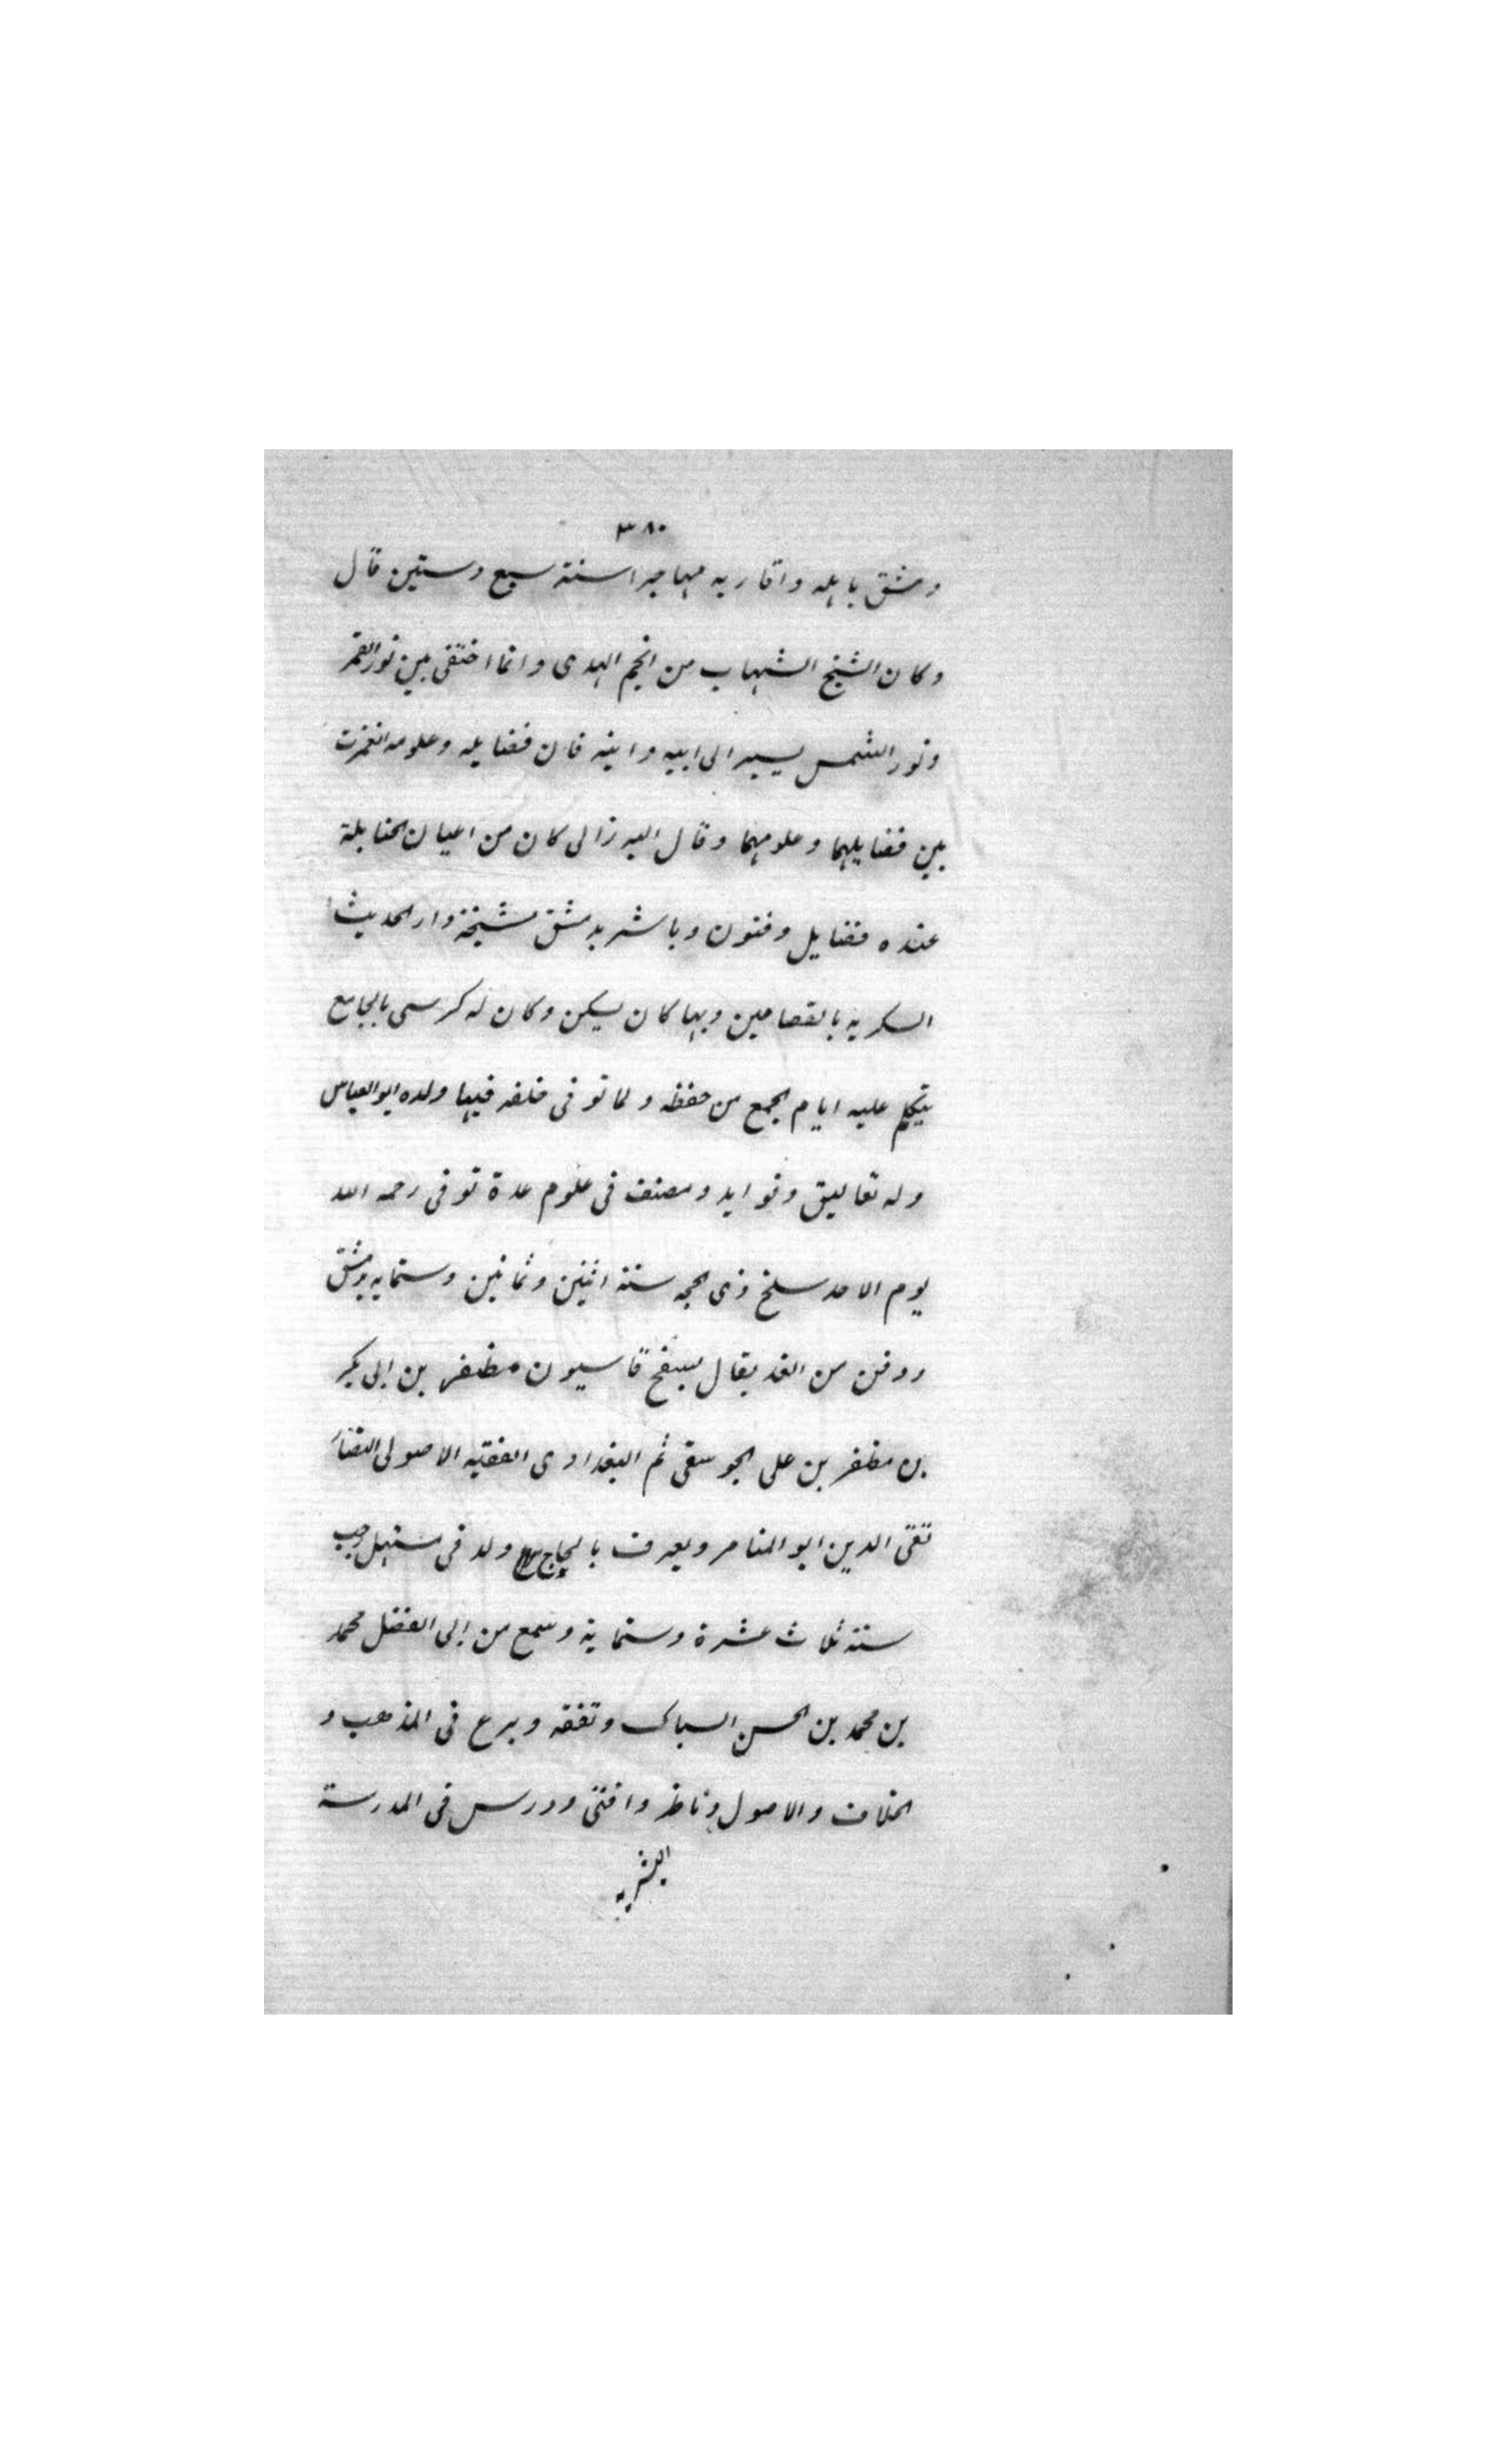 ٣٨٠
دمشق باهله واقاربه مهاجرا سنة سبع وستين قال
وكان الشيخ الشهاب من انجم الهدى وانما اختفى بين نور القمر
ونور الشمس يسير الى ابيه وابنه فان فضايله وعلومه انغمزت
بين فضايلهما وعلومهما وقال البرزالى كان من اعيان الحنابلة
عنده فضايل وفنون وباشر بدمشق مشيخة دار الحديث
السكريه بالقصاعين وبها كان يسكن وكان له كرسى بالجامع
يتكلم عليه ايام الجمع من حفظه ولما توفى خلفه فيها ولده ابو العباس
وله تعاليق وفوايد ومصنف فى علوم عدة توفى رحمه الله
يوم الاحد سلخ ذى الحجه سنة اثنين وثمانين وستمايه بدمشق
ودفن من الغد يقال بسفح قاسيون مظفر بن ابى بكر
بن مظفر بن على الجوسقى ثم البغدادى الفقيه الاصولى النضار
تقى الدين ابو المنامر ويعرف بالحاج ولد فى مستهل رجب
سنة ثلاث عشرة وستماية وسمع من ابى الفضل محمد
بن محمد بن الحسن السباك وتفقه وبرع فى المذهب و
الخلاف والاصول وناظر وافتى ودرس فى المدرسة
البشريه